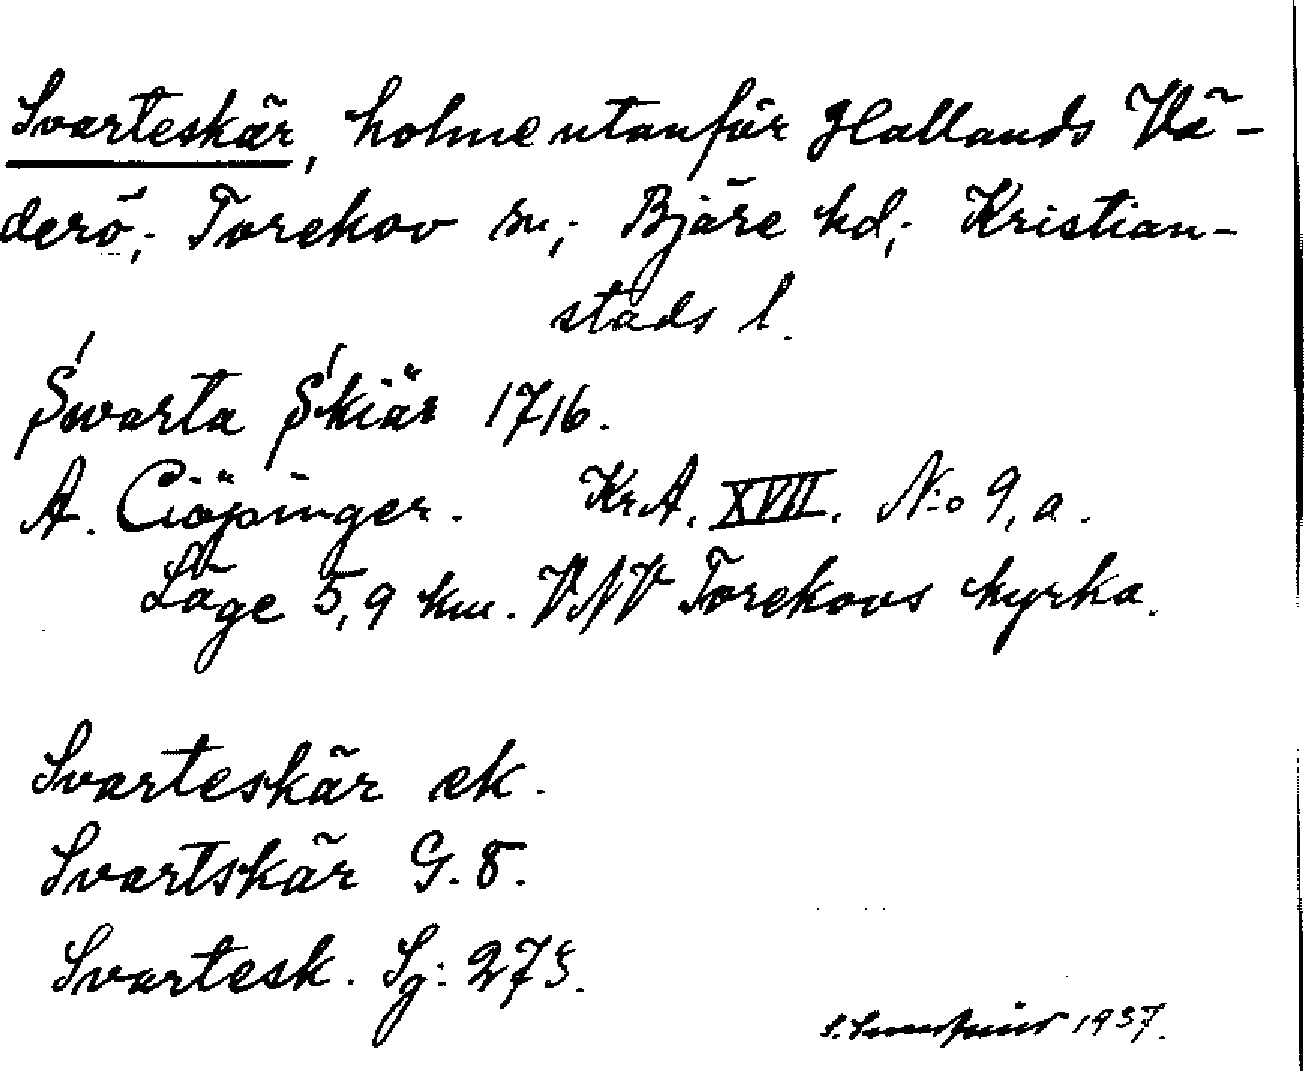 Svarteskär, holme utanför Hallands Vä-
derö; Torekov sn; Bjäre hd; Kristian-
stads l.
Swarta Skiär 1716.
A. Ciöpinger. Kr.A. XVII. N:o 9, a.
Läge 5,9 km. VNV Torekovs kyrka.
Svarteskär ek.
Svartskär G. 8.
Svartesk. Sg: 275.
1937.